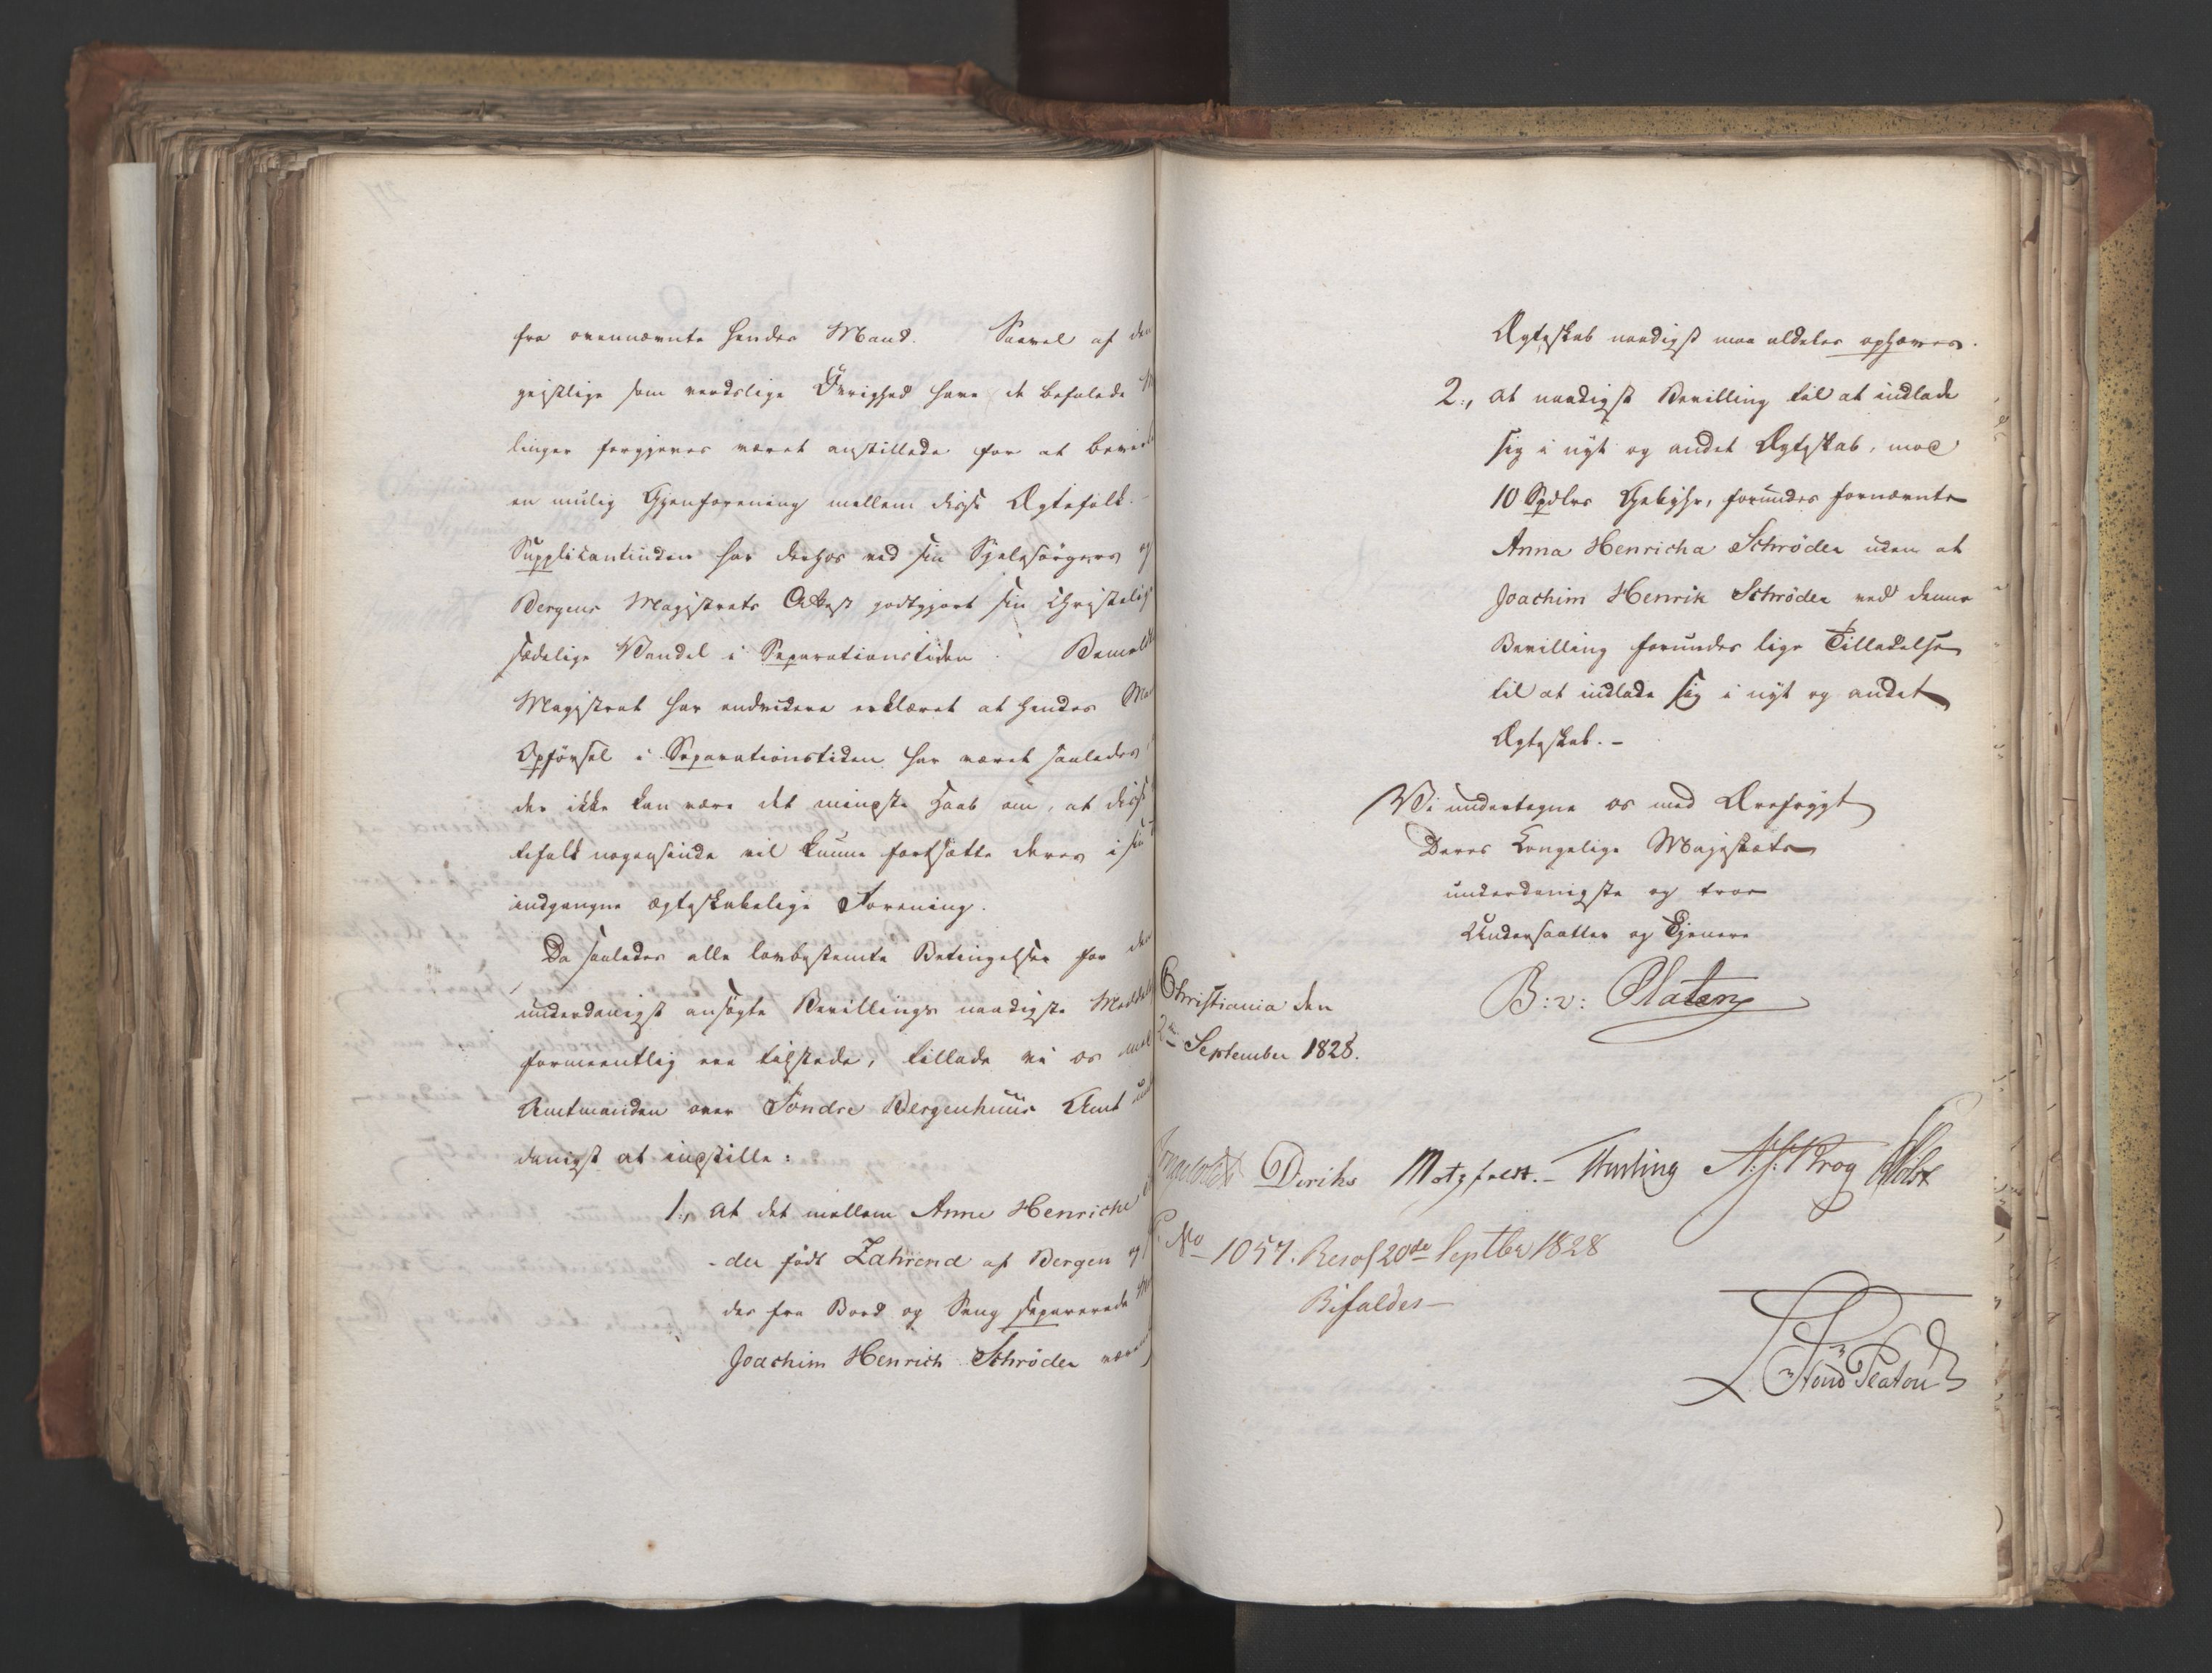 fra ovennævnte hendes Mand. Saavel af den
geistlige som verdslige Øvrighed have de befalede
linger forgjeves været anstillede for at bevir
en mulig Gjenforening mellem disse Ægtefolk.
Supplicantinden har derhos ved sin Sjelesørgers og
Bergens Magistrats Attest godtgjort sin Christelig
sædelige Vandel i Separationstiden. Bemeldte
Magistrat har endvidere erklæret at hendes Ma
Opførsel i Separationstiden har været saaledes,
der ikke kan være det mindste Haab om, at disse
tefolk nogensinde vil kunne fortsætte deres i sin
indgangne ægteskabelige Forening.
Da saaledes alle lovbestemte Betingelser for den
underdanigst ansøgte Bevillings naadigste Meddel
formeentlig ere tilstede, tillade vi os med
Amtmanden over Søndre Bergenhuus Amt un
danigst at indstille:
1, at det mellem Anne Henriche
-der født Zahrend af Bergen og
des fra Bord og Seng separerede M
Joachim Henrich Schrøder være
Ægteskab naadigst maa aldeles ophæves.
2, at naadigst Bevilling til at indlade
sig i nyt og andet Ægteskab, mod
10 Spdlrs Gebyhr, forundes fornævnte
Anna Henricha Schrøder uden at
Joachim Henrik Schrøder ved denne
Bevilling forundes lige Tilladelse
til at indlade sig i nyt og andet
Ægteskab.-
Vi undertegne os med Ærefrygt
Deres Kongelige Majestæts
underdanigste og troe
Undersaatter og Tjenere
B: v: Platen
Christiania den
2den September 1828.
Diriks Motzfeldt.- A: J: Krog Holst
No 1057. Resol 20de Septbr 1828
Bifaldes-
Stoud Platou